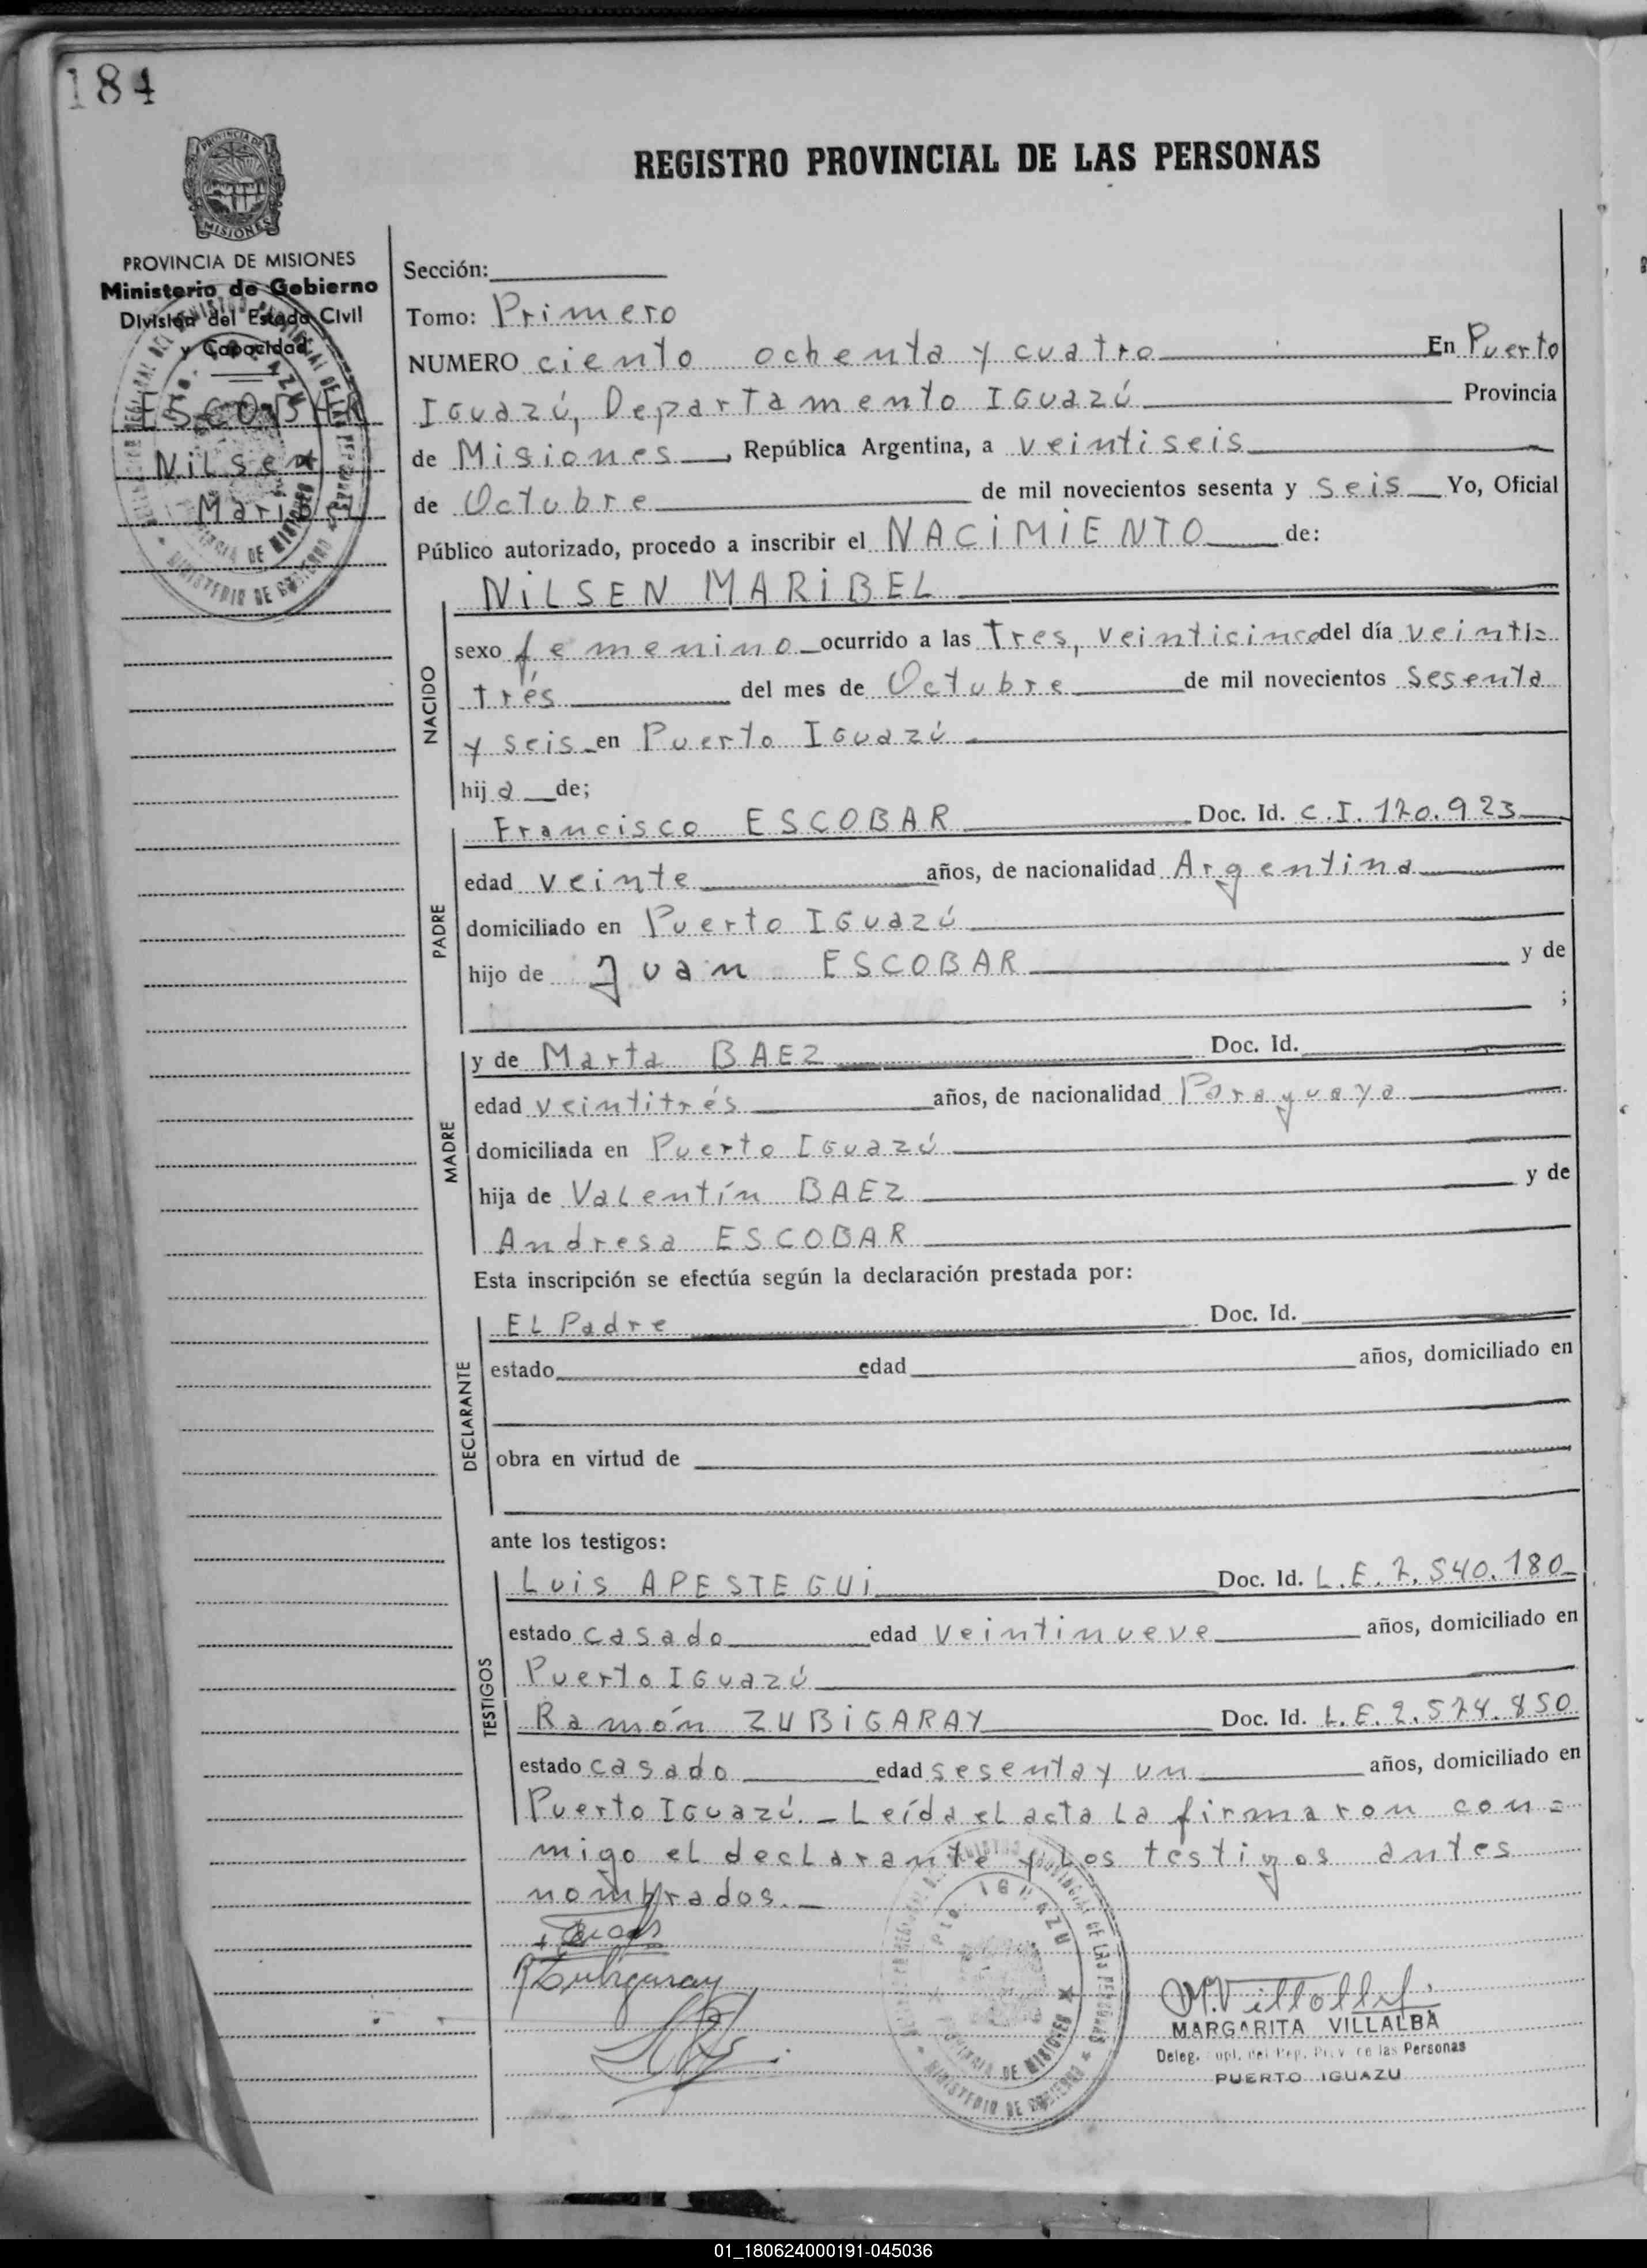 184
PROVINCIA DE MISIONES
Ministerio de Gobierno
División del Estado Civil
y Capacidad
ESCOBAR
Nilsen
Maribel
REGISTRO PROVINCIAL DE LAS PERSONAS
Sección:
Tomo: Primero
NUMERO ciento ochenta y cuatro En Puerto
Iguazú, Departamento Iguazú Provincia
de Misiones, República Argentina, a veintiseis
de Octubre de mil novecientos sesenta y seis Yo, Oficial
Público autorizado, procedo a inscribir el NACIMIENTO de:
NILSEN MARIBEL
NACIDO
sexo femenino ocurrido a las tres, veinticinco del día veinti=
trés del mes de Octubre de mil novecientos sesenta
y seis en Puerto Iguazú
hija de;
PADRE
Francisco ESCOBAR Doc. Id. C.I. 120.923
edad veinte años, de nacionalidad Argentina
domiciliado en Puerto Iguazú
hijo de Juan ESCOBAR y de
;
MADRE
y de Marta BAEZ Doc. Id.
edad veintitrés años, de nacionalidad Paraguaya
domiciliada en Puerto Iguazú
hija de Valentín BAEZ y de
Andresa ESCOBAR
Esta inscripción se efectúa según la declaración prestada por:
DECLARANTE
El Padre Doc. Id.
estado edad años, domiciliado en
obra en virtud de
ante los testigos:
TESTIGOS
Luis APESTEGUI Doc. Id. L.E. 7.540.180
estado casado edad veintinueve años, domiciliado en
Puerto Iguazú
Ramón ZUBIGARAY Doc. Id. L.E. 2.574.850
estado casado edad sesenta y un años, domiciliado en
Puerto Iguazú. _ Leída el acta la firmaron con=
migo el declarante y los testigos antes
nombrados. _
R Zubigaray
M. Villalba
MARGARITA VILLALBA
Deleg. de las Personas
PUERTO IGUAZU
01_180624000191-045036